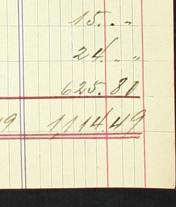 15. „ „
24. „ „
625. 80
9 1,114.49